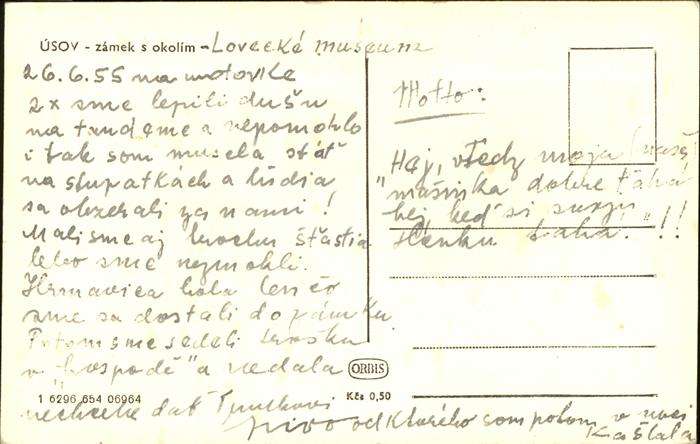 ÚSOV - zámek s okolím - Lovecké museum
26.6.55 na motorke
2x sme lepili dušu
na tandeme a nepomohlo
i tak som musela stáť
na stupatkách a ludia
sa obzerali za nami!
Mali sme aj trochu šťastia
lebo sme nezmokli.
Hrmavica bola len čo
sme sa dostali do zámku.
Potom sme sedeli trošku
v "hospodě" a nedala
nechcela dať
pivo od kterého som potom v noci
Motto:
"Haj, vtedy moja (naša)
mašinka dobre ťahá
hej, keď si svoju
Slenku ťahá."!!
ORBIS
1 6296 654 06964
Kčs 0,50